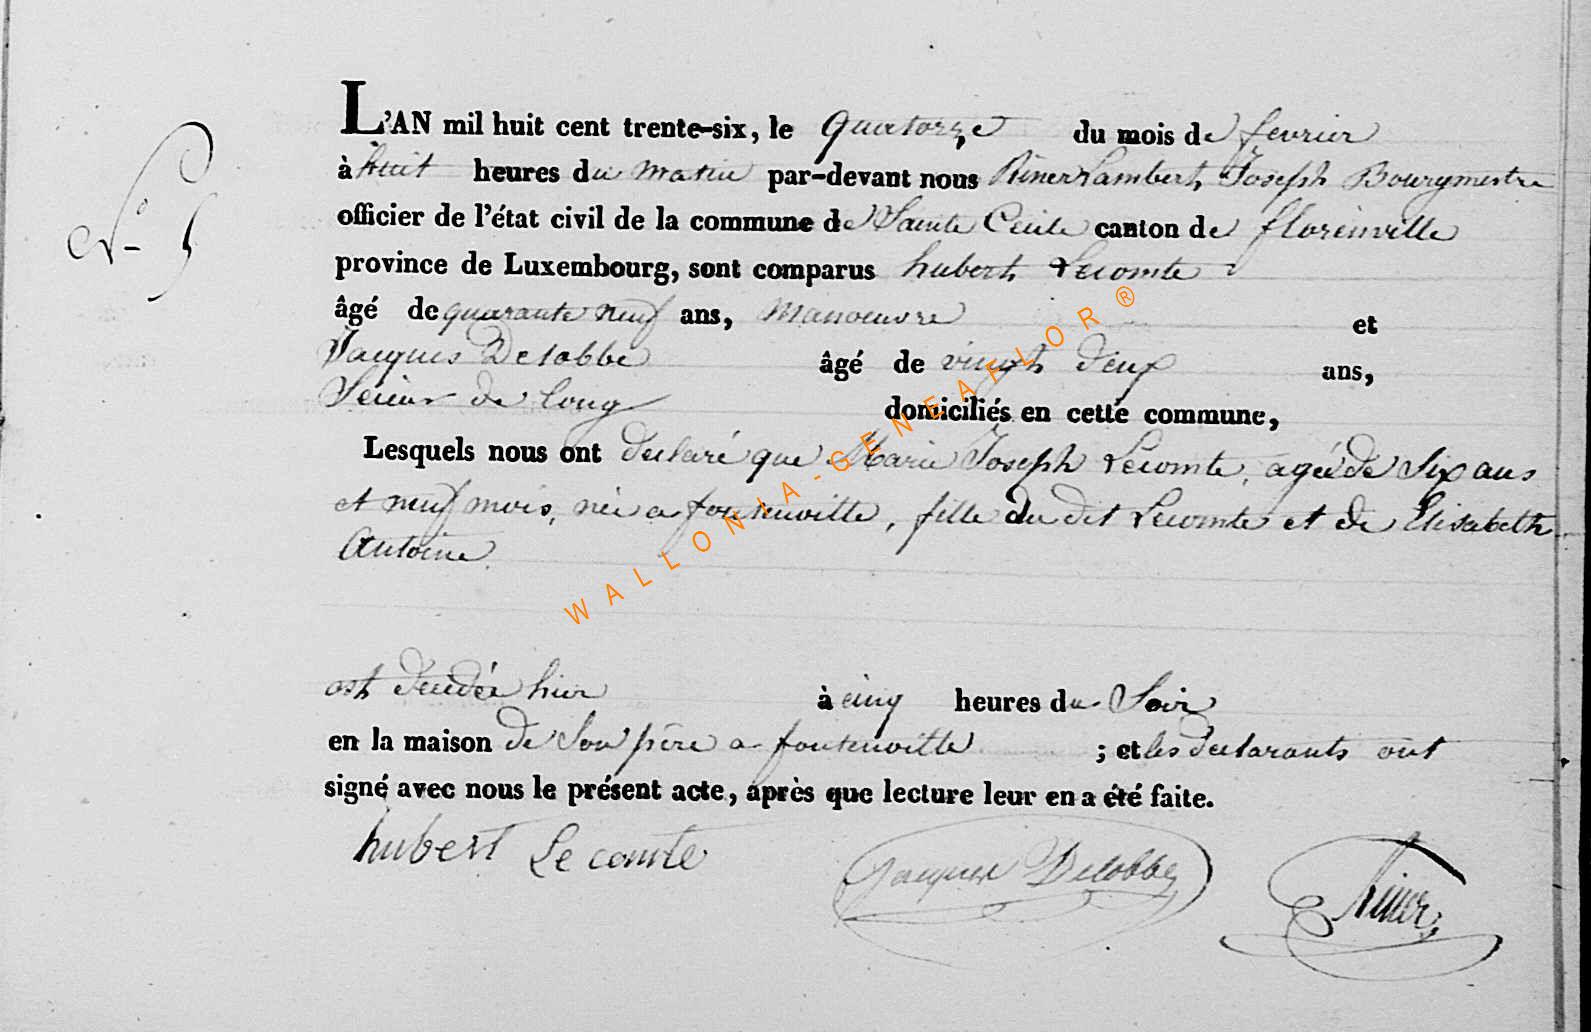 N° 5
L'AN mil huit cent trente-six, le quatorze du mois de fevrier
à huit heures du matin par-devant nous Riner Lambert Joseph Bourgmestre
officier de l'état civil de la commune de Sainte Cecile canton de florenville
province de Luxembourg, sont comparus hubert Lecomte
âgé de quarante neuf ans, manoeuvre et
Jacques Delobbe âgé de vingt deux ans,
Scieur de long domiciliés en cette commune,
Lesquels nous ont declaré que Marie Joseph Lecomte, agée de six ans
et neuf mois, née a fontenoille, fille du dit Lecomte et de Elisabeth
Antoine.
est decedée hier à cinq heures du Soir
en la maison de Son père a fontenoille ; et les declarants ont
signé avec nous le présent acte, après que lecture leur en a été faite.
hubert Le comte Jacques Delobbe Riner
WALLONIA-GENEAFLOR®